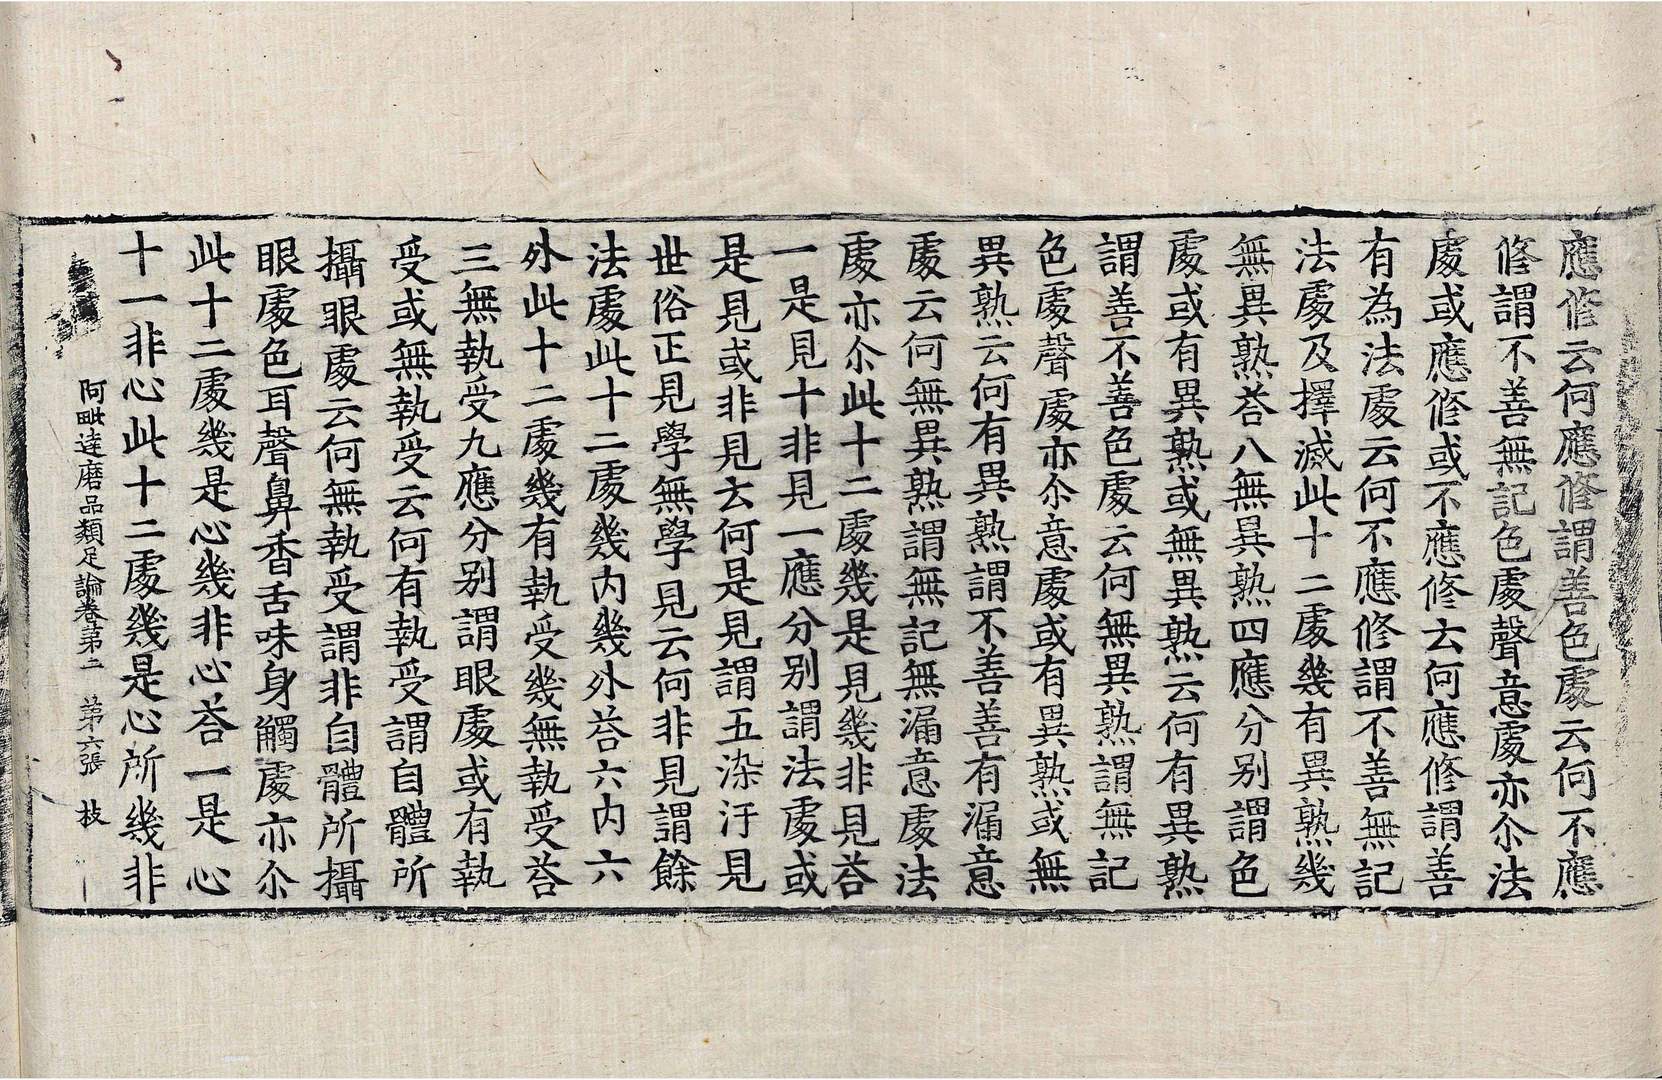 應修云何應修謂善色處云何不應
修謂不善無記色處聲意處亦尒法
處或應修或不應修云何應修謂善
有為法處云何不應修謂不善無記
法處及擇滅此十二處幾有異熟幾
無異熟荅八無異熟四應分別謂色
處或有異熟或無異熟云何有異熟
謂善不善色處云何無異熟謂無記
色處聲處亦尒意處或有異熟或無
異熟云何有異熟謂不善善有漏意
處云何無異熟謂無記無漏意處法
處亦尒此十二處幾是見幾非見荅
一是見十非見一應分別謂法處或
是見或非見云何是見謂五染汙見
世俗正見學無學見云何非見謂餘
法處此十二處幾內幾外荅六內六
外此十二處幾有執受幾無執受荅
三無執受九應分別謂眼處或有執
受或無執受云何有執受謂自體所
攝眼處云何無執受謂非自體所攝
眼處色耳聲鼻香舌味身觸處亦尒
此十二處幾是心幾非心荅一是心
十一非心此十二處幾是心所幾非
阿毗達磨品類足論卷第二 第六張 枝